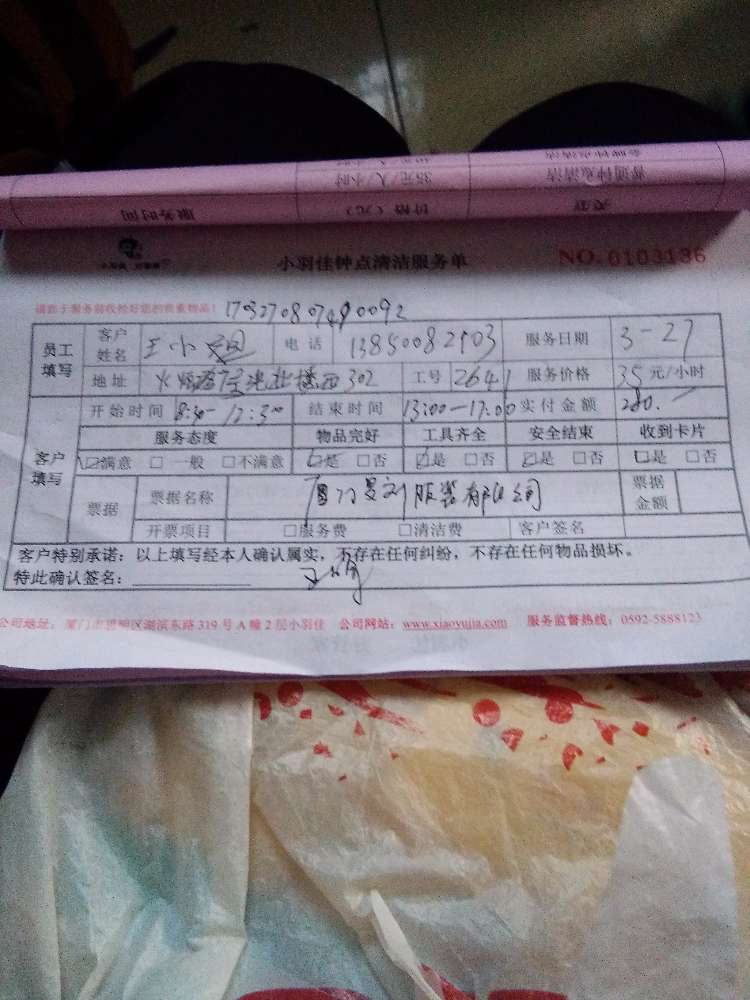 服务时间 价格（元） 类型
35元/人/小时 普通钟点清洁
金牌钟点清洁
小羽佳钟点清洁服务单 NO.0103136
请您于服务前收拾好您的贵重物品！
员工填写 客户姓名 王小 电话 13850082503 服务日期 3-27
地址 302 工号 2641 服务价格 35元/小时
客户填写 开始时间 8:30-12:300 结束时间 13:00-17:00 实付金额 280.
服务态度 物品完好 工具齐全 安全结束 收到卡片
☑满意 □一般 □不满意 ☑是 □否 ☑是 □否 ☑是 □否 ☑是 □否
票据 票据名称 厦门 服装有限公司 票据金额
开票项目 □服务费 □清洁费 客户签名
客户特别承诺：以上填写经本人确认属实，不存在任何纠纷，不存在任何物品损坏。
特此确认签名：
公司地址：厦门市思明区湖滨东路319号A幢2层小羽佳 公司网站：www.xiaoyujia.com 服务监督热线：0592-5888123